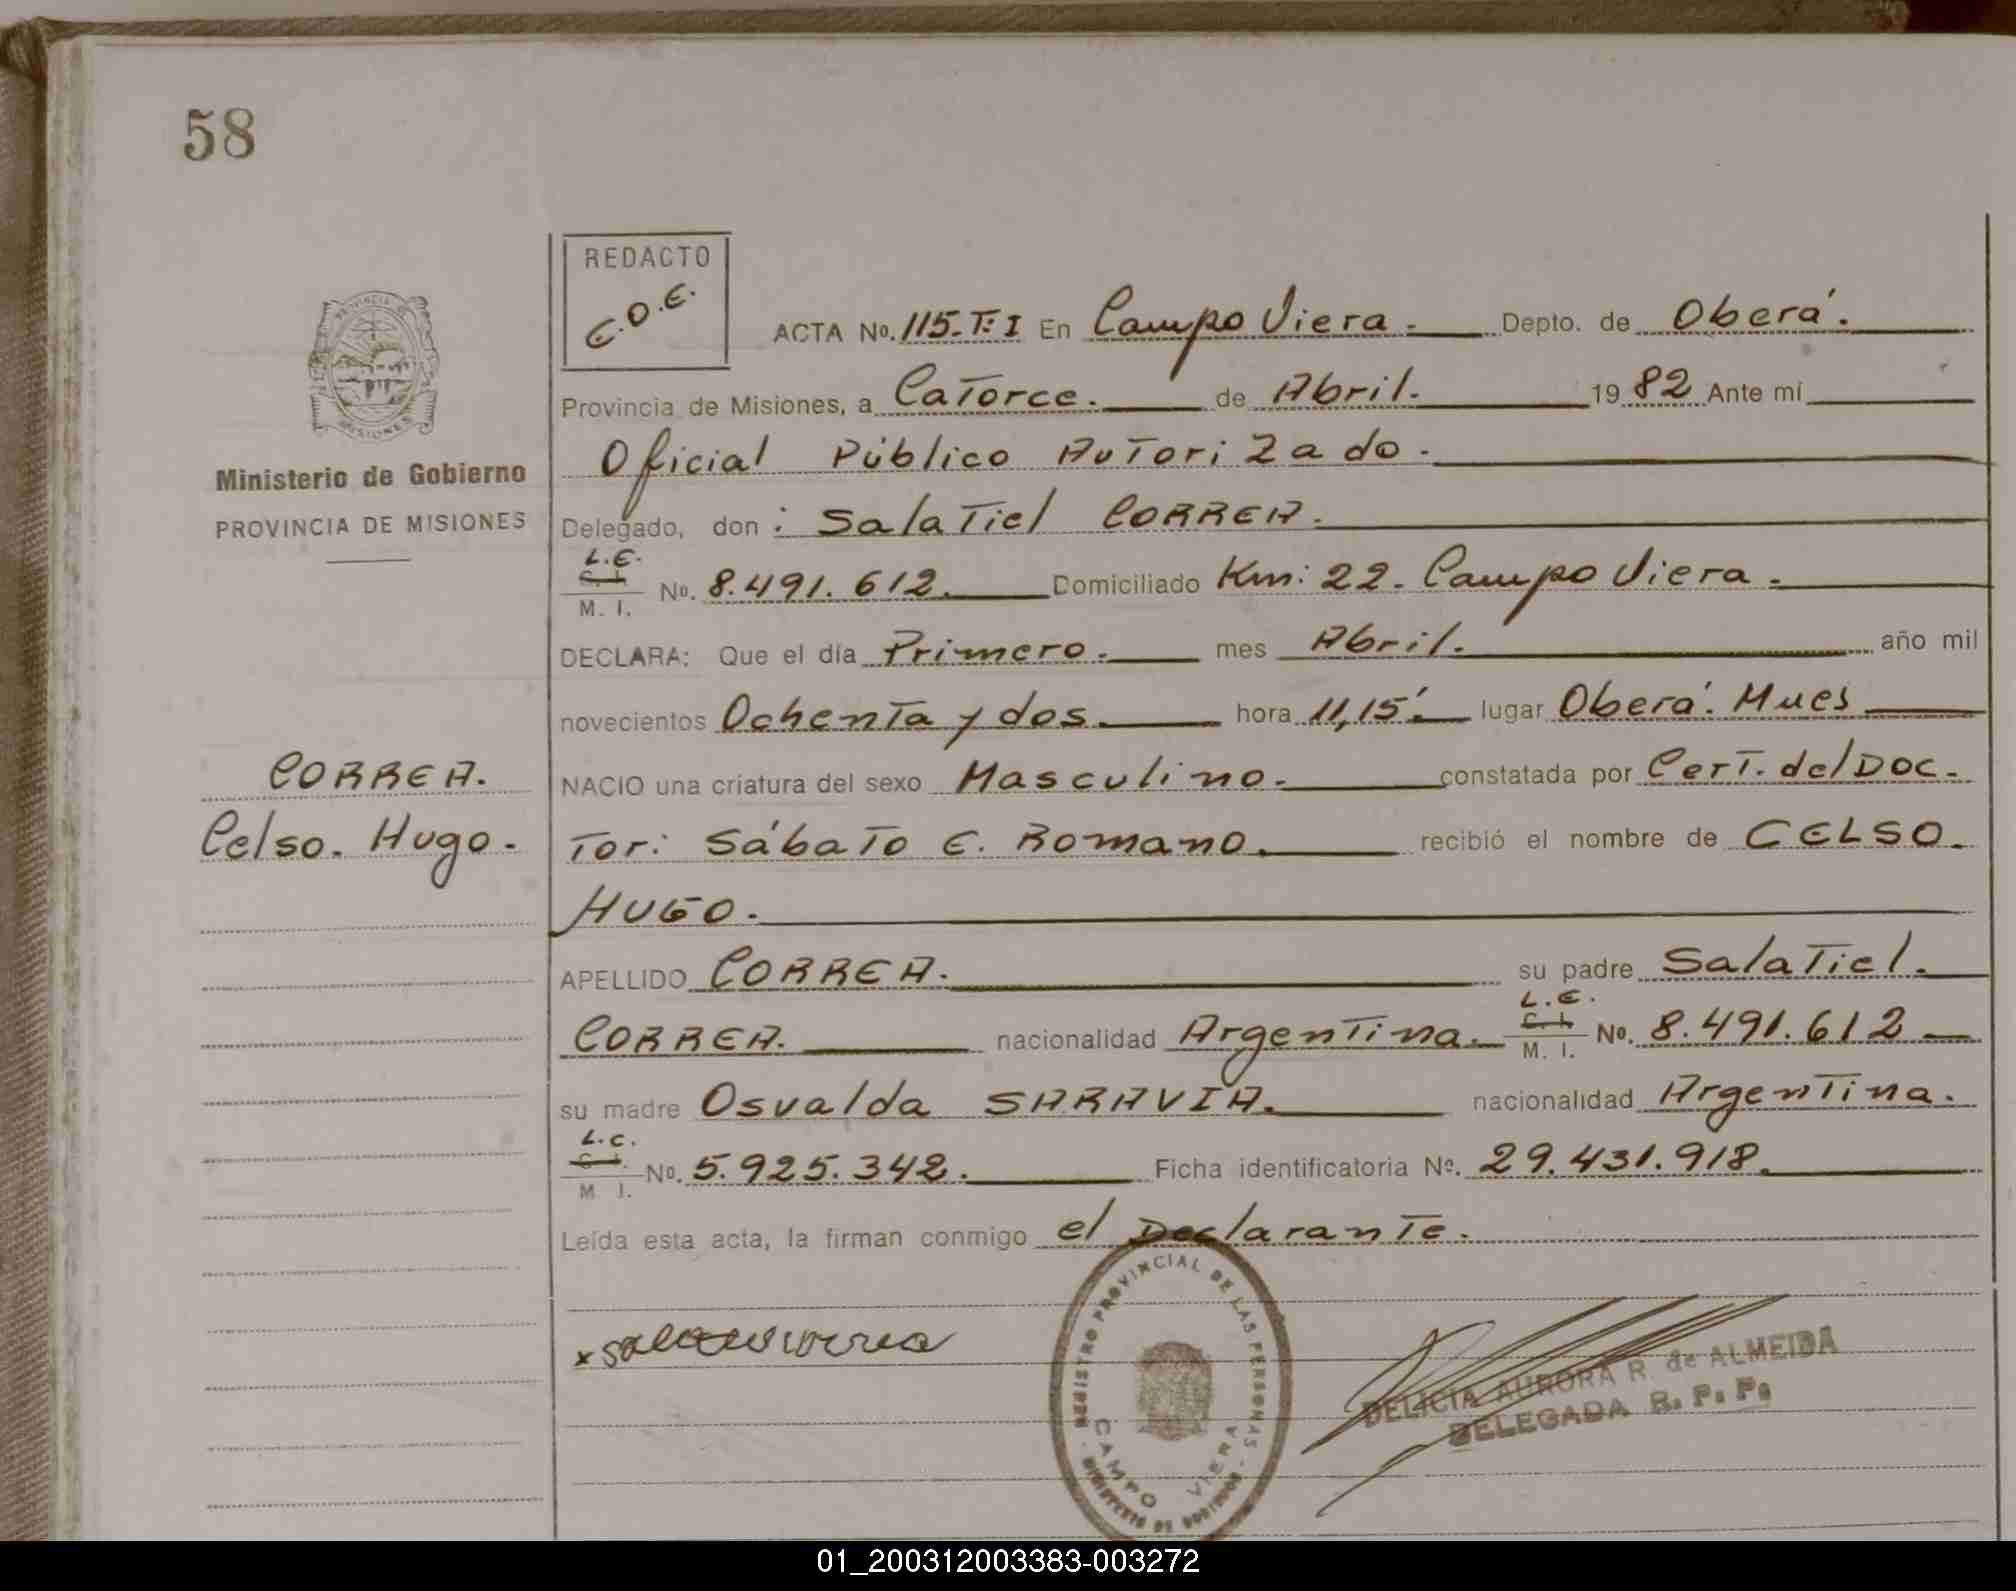 58
REDACTO
E.D.E.
PROVINCIA DE MISIONES
ACTA No. 115-T:I En Campo Viera. Depto. de Oberá.
Provincia de Misiones, a Catorce. de Abril. 1982 Ante mí
Oficial Público Autorizado.
Ministerio de Gobierno
PROVINCIA DE MISIONES
Delegado, don: Salatiel CORREA.
L.E.
C. I.
M. I. No. 8.491.612. Domiciliado Km: 22. Campo Viera.
DECLARA: Que el día Primero. mes Abril. año mil
novecientos Ochenta y dos. hora 11,15´. lugar Oberá. Mnes
CORREA.
Celso. Hugo.
NACIO una criatura del sexo Masculino. constatada por Cert. del Doc-
tor: Sábato E. Romano. recibió el nombre de CELSO.
HUGO.
APELLIDO CORREA. su padre Salatiel.
L.E.
CORREA. nacionalidad Argentina. C. I. M. I. No. 8.491.612
su madre Osvalda SARAVIA. nacionalidad Argentina.
L.C.
C. I.
M. I. No. 5.925.342. Ficha identificatoria No. 29.431.918.
Leída esta acta, la firman conmigo el Declarante.
x salatiel correa
REGISTRO PROVINCIAL DE LAS PERSONAS
CAMPO VIERA
MINISTERIO DE GOBIERNO
DELICIA AURORA R. de ALMEIDA
DELEGADA R. P. P.
01_200312003383-003272